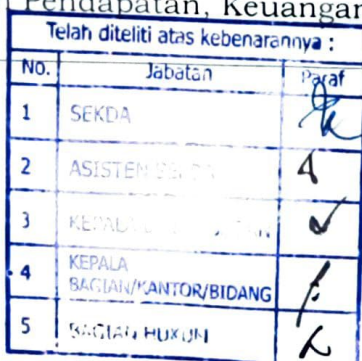 Pendapatan, Keuangan
Telah diteliti atas kebenarannya :
No. Jabatan Paraf
1 SEKDA
2 ASISTEN
3 KEPALA
4 KEPALA
BAGIAN/KANTOR/BIDANG
5 BAGIAN HUKUM